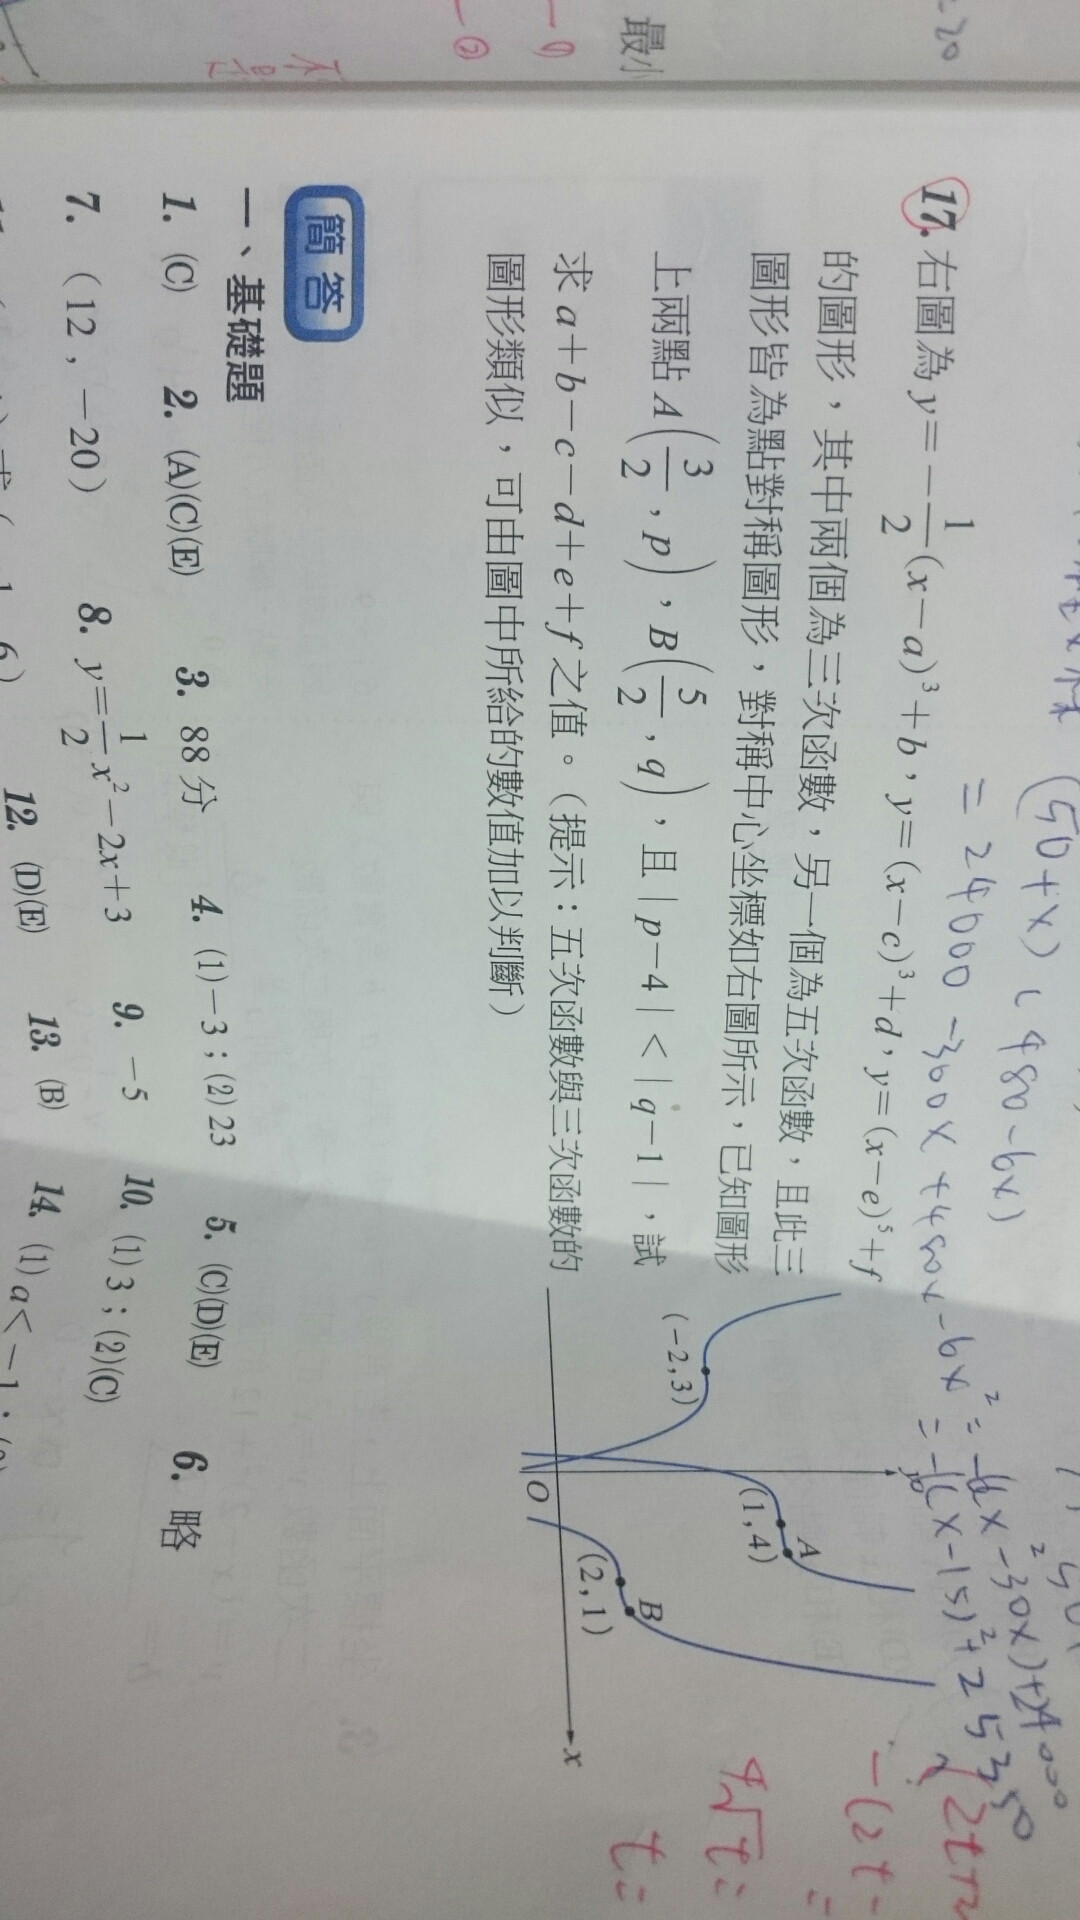 =20
最小
—①
—②
(50+x)(480-6x)
= 24000-300x+480x-6x²=-6(x²-30x)+24000
17. 右圖為 y=-\frac{1}{2}(x-a)³+b,y=(x-c)³+d,y=(x-e)⁵+f
的圖形,其中兩個為三次函數,另一個為五次函數,且此三
圖形皆為點對稱圖形,對稱中心坐標如右圖所示,已知圖形
上兩點 A(\frac{3}{2},p),B(\frac{5}{2},q),且|p-4|<|q-1|,試
求 a+b-c-d+e+f 之值。(提示:五次函數與三次函數的
圖形類似,可由圖中所給的數值加以判斷)
y
A
(1,4)
(-2,3)
B
(2,1)
O
x
簡答
一、基礎題
1. (C) 2. (A)(C)(E) 3. 88 分 4. (1)-3;(2)23 5. (C)(D)(E) 6. 略
7. (12,-20) 8. y=\frac{1}{2}x²-2x+3 9. -5 10. (1)3;(2)(C)
12. (D)(E) 13. (B) 14. (1)a<-1;